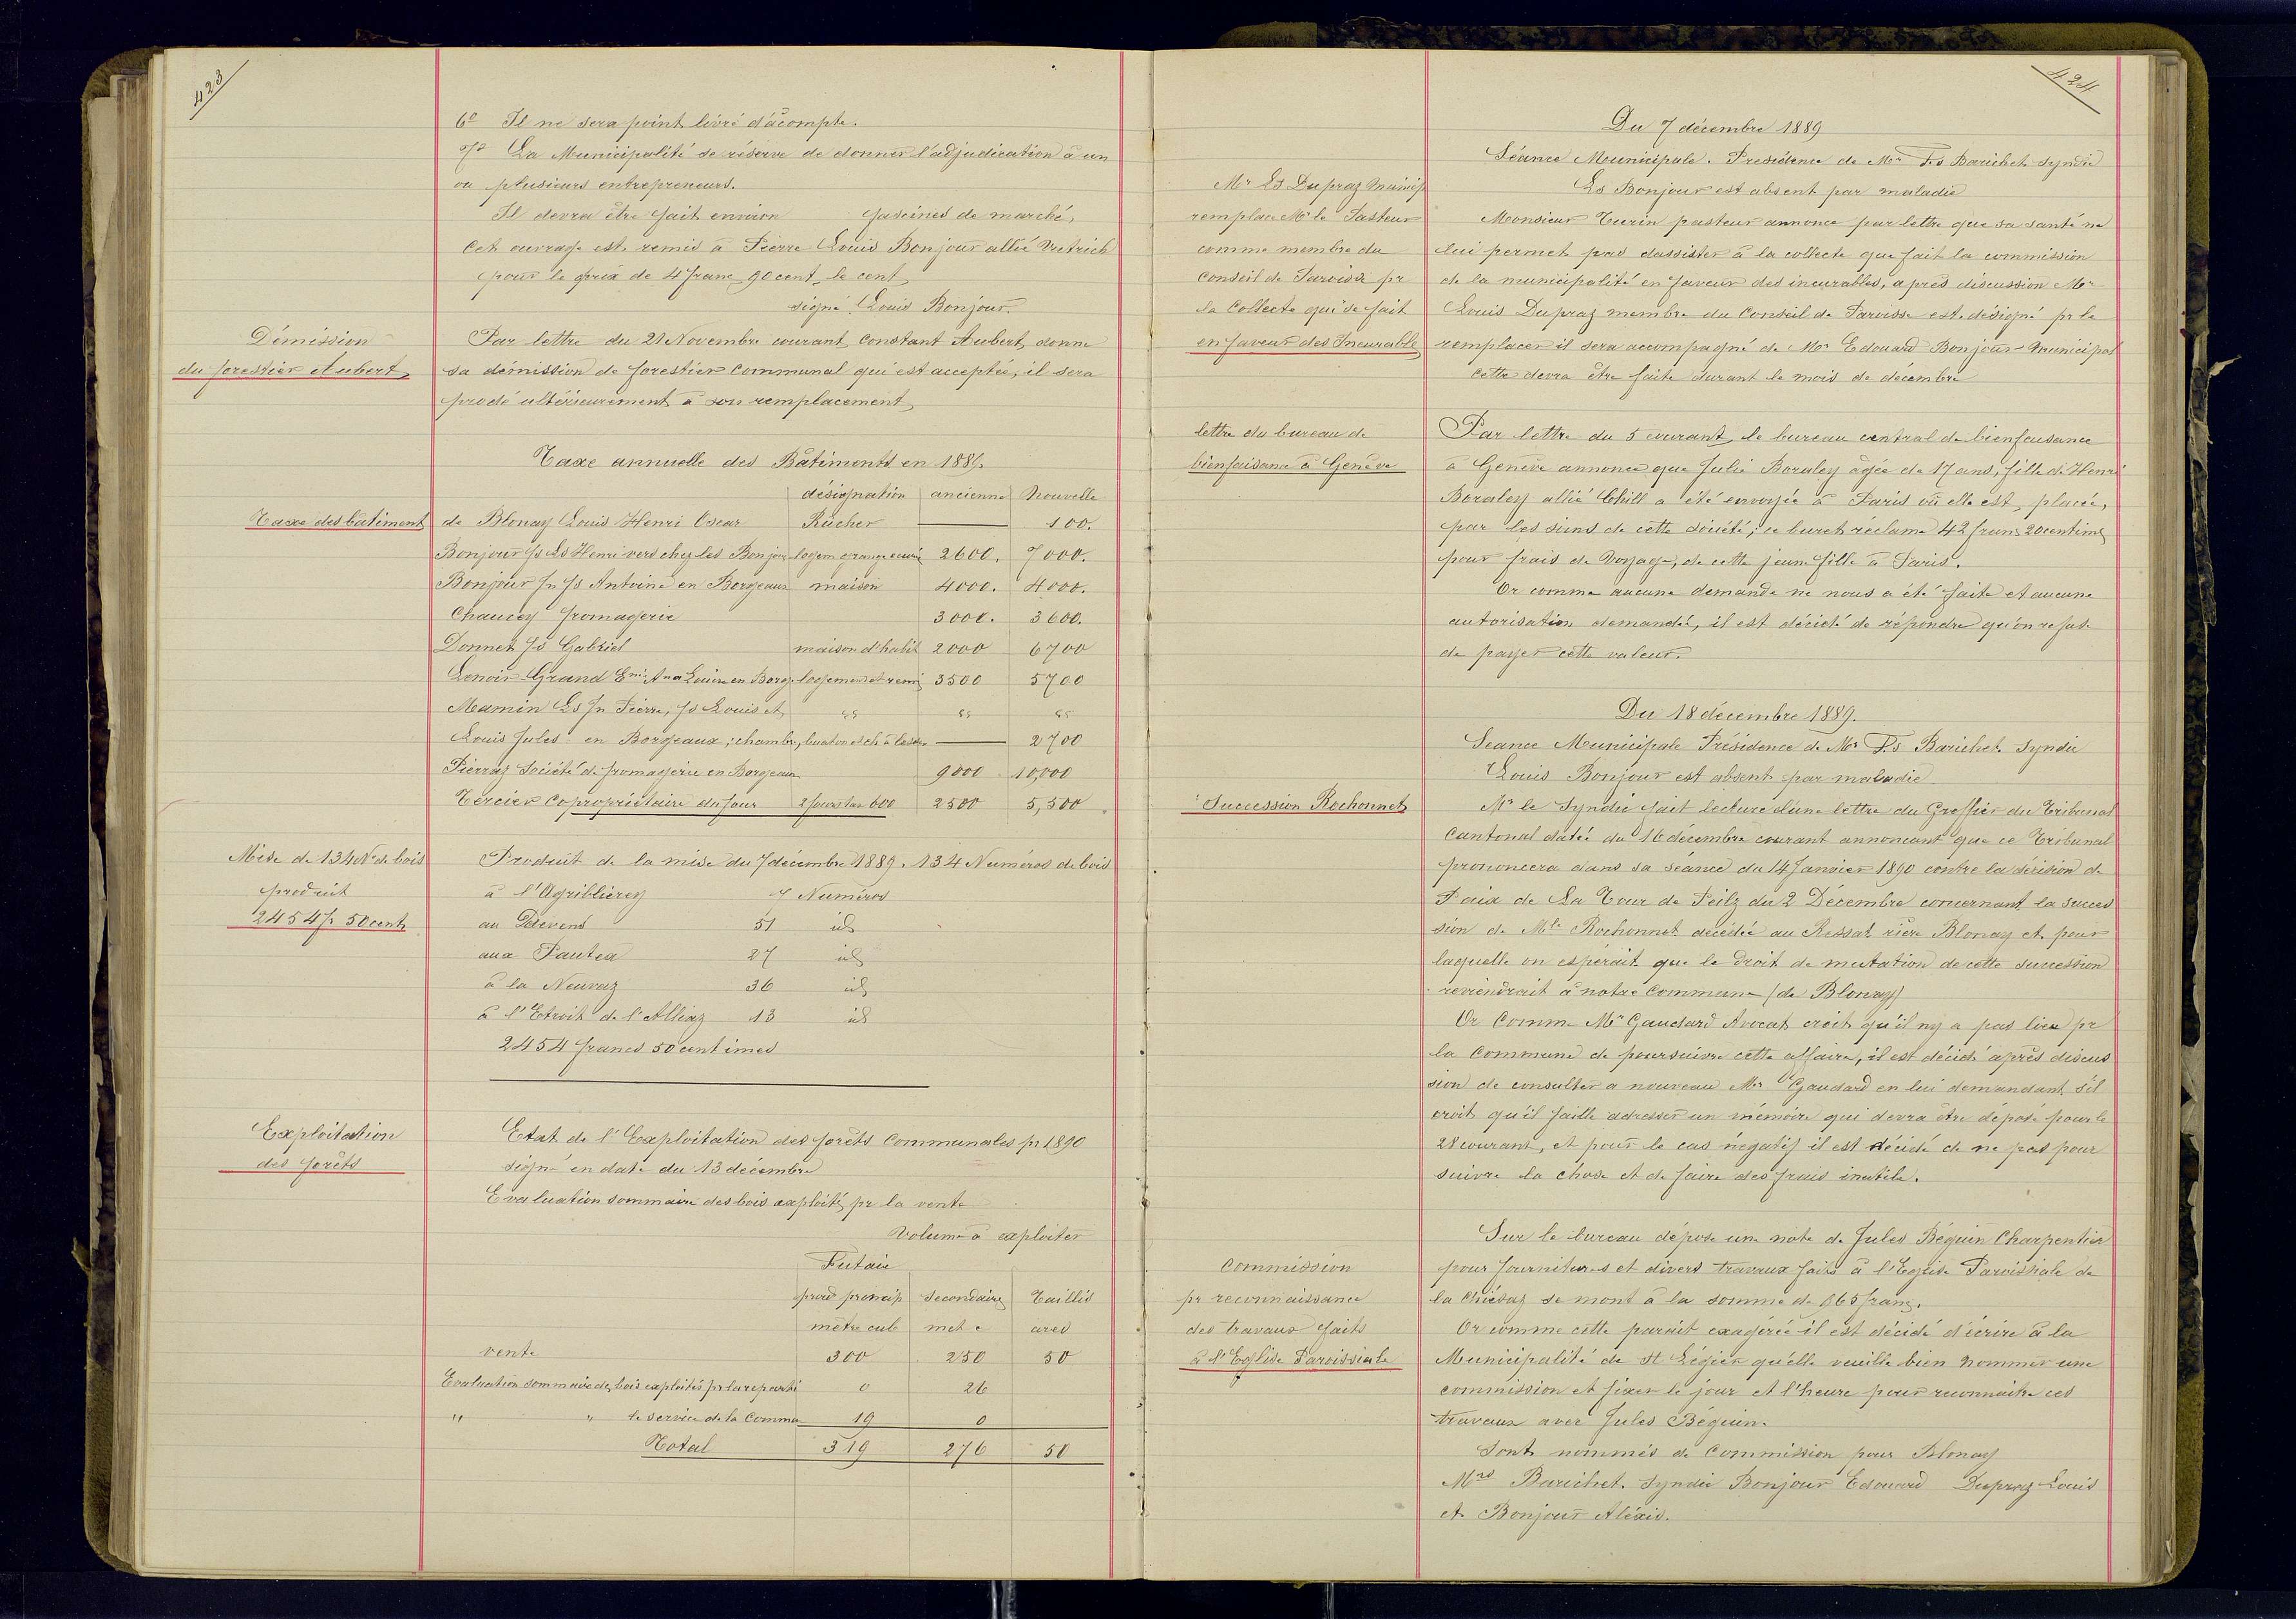 423
6° Il ne sera point livré d'acompte.
7° La Municipalité se réserve de donner l'adjudication à un
ou plusieurs entrepreneurs.
Il devra être fait environ fascines de marché,
Cet ouvrage est remis à Pierre Louis Bonjour allié
pour le prix de 4 franc 90 cent le cent
signé Louis Bonjour.
Démission
du forestier Aubert
Par lettre du 21 Novembre courant Constant Aubert donne
sa démission de forestier Communal qui est acceptée, il sera
procdé ultérieurement à son remplacement
Taxe annuelle des Bâtiments en 1889.
désignation ancienne Nouvelle
Taxe des bâtiment
de Blonay Louis Henri Oscar Rucher — 100.
Bonjour fs Ls Henri vers chez les Bonjour logem grange écurie 2600. 7000.
Bonjour Jn fs Antoine en Borgeaux maison 4000. 4000.
Chaucey fromagerie 3000. 3600.
Donnet fs Gabriel maison d'habit 2000 6700
Lenoir-Grand Louise en Borge logement et remi 3500 5700
Mamin Ls Jn Pierre, fs Louis et " " "
Louis Jules en Borgeaux ; chambr, — 2700
Pierraz Société de fromagerie en Borgeaux 9000 10,000
Tercier Copropriétaire du four 2 fours tax 600 2500 5,500
Mise de 134 Nos de bois
produit
2454 fr 50 cent
Produit de la mise du 7 décembre 1889. 134 Numéros de bois
à l'Agriblierey 7 Numéros
au Devens 51 id
aux Pautex 27 id
à la Neuvaz 36 id
à l'Etroit de l'Alliaz 13 id
2454 francs 50 centimes
Exploitation
des forêts
Etat de l'Exploitation des forêts Communales pr 1890
signé en date du 13 décembre
Evaluation sommaire des bois exploités pr la vente
Volume à exploiter
Futaie
prod princip secondaire Taillis
mètre cub met c ares
vente 300 250 50
Evaluation sommaire des bois exploités pr la reparti 0 26
" " le service de la Commun 19 0
Total 319 276 50
424
Du 7 décembre 1889
Séance Municipale. Presidence de Mr Fs Barichet syndic
Ls Bonjour est absent par maladie
Mr Ls Dupraz Municip
remplace Mr le Pasteur
comme membre du
Conseil de Paroisse pr
la Collecte qui se fait
en faveur des Incurable
Monsieur Turin pasteur annonce par lettre que sa santé ne
lui permet pas dassister à la collecte que fait la commission
de la municipalité en faveur des incurables, après discussion Mr
Louis Dupraz membre du Conseil de Paroisse est désigné pr le
remplacer il sera accompagné de Mr Edouard Bonjour Municipal
cette devra être faite durant le mois de décembre
lettre du bureau de
bienfaisance à Genève
Par lettre du 5 courant, le bureau central de bienfaisance
à Genève annonce que Julie Boraley âgée de 17 ans, fille de Henri
Boraley allié Chill a été envoyée à Paris où elle est placée,
par les soins de cette société ; ce burea réclame 42 franc 20 centimes
pour frais de voyage, de cette jeune fille à Paris.
Or comme aucune demande ne nous a été faite et aucune
autorisation demandée, il est décidé de répondre qu'on refuse
de payer cette valeur.
Du 18 décembre 1889.
Seance Municipale Présidence de Mr Fs Barichet Syndic
Louis Bonjour est absent par maladie
Succession Rochonnet
Mr le Syndic fait lecture d'une lettre du Greffier du Tribunal
Cantonal datée du 16 décembre courant annoncant que ce Tribunal
prononcera dans sa séance du 14 Janvier 1890 contre la décision de
Paix de La Tour de Peilz du 2 Décembre concernant la succes
sion de Mlle Rochonnet décédée au Ressat rière Blonay et pour
laquelle on espérait que le droit de mutation de cette succession
reviendrait à notre Commune (de Blonay)
Or Comme Mr Gaudard Avocat croit qu'il ny a pas lieu pr
la Commune de poursuivre cette affaire, il est décidé après discus
sion de consulter a nouveau Mr Gaudard en lui demandant s'il
croit qu'il faille adresser un mémoire qui devra être déposé pour le
28 courant, et pour le cas négatif il est décidé de ne pas pour
suivre la chose et de faire des frais inutile.
Commission
pr reconnaissance
des travaux faits
à l'Eglise Paroissiale
Sur le bureau dépose une note de Jules Béguin Charpentier
pour fournitures et divers travaux faits à l'Eglise Paroissiale de
la Chiésaz se mont à la somme de 965 franc.
Or comme cette parait exagérée il est décidé d'écrire à la
Municipalité de St Légier qu'elle veuille bien nommer une
commission et fixer le jour et l'heure pour reconnaitre ces
travaux avec Jules Béguin.
Sont nommés de Commission pour Blonay
Mrs Barichet Syndic Bonjour Edouard Dupraz Louis
et Bonjour Aléxis.